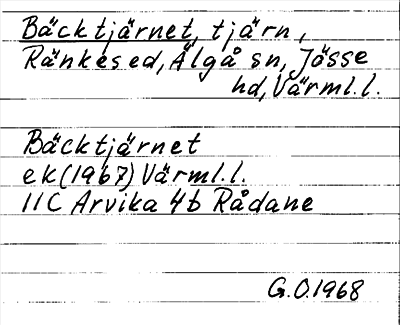 Bäcktjärnet, tjärn,
Ränkesed, Älgå sn, Jösse
hd, Värml.l.
Bäcktjärnet
ek (1967) Värml.l.
11C Arvika 4b Rådane
G.O.1968